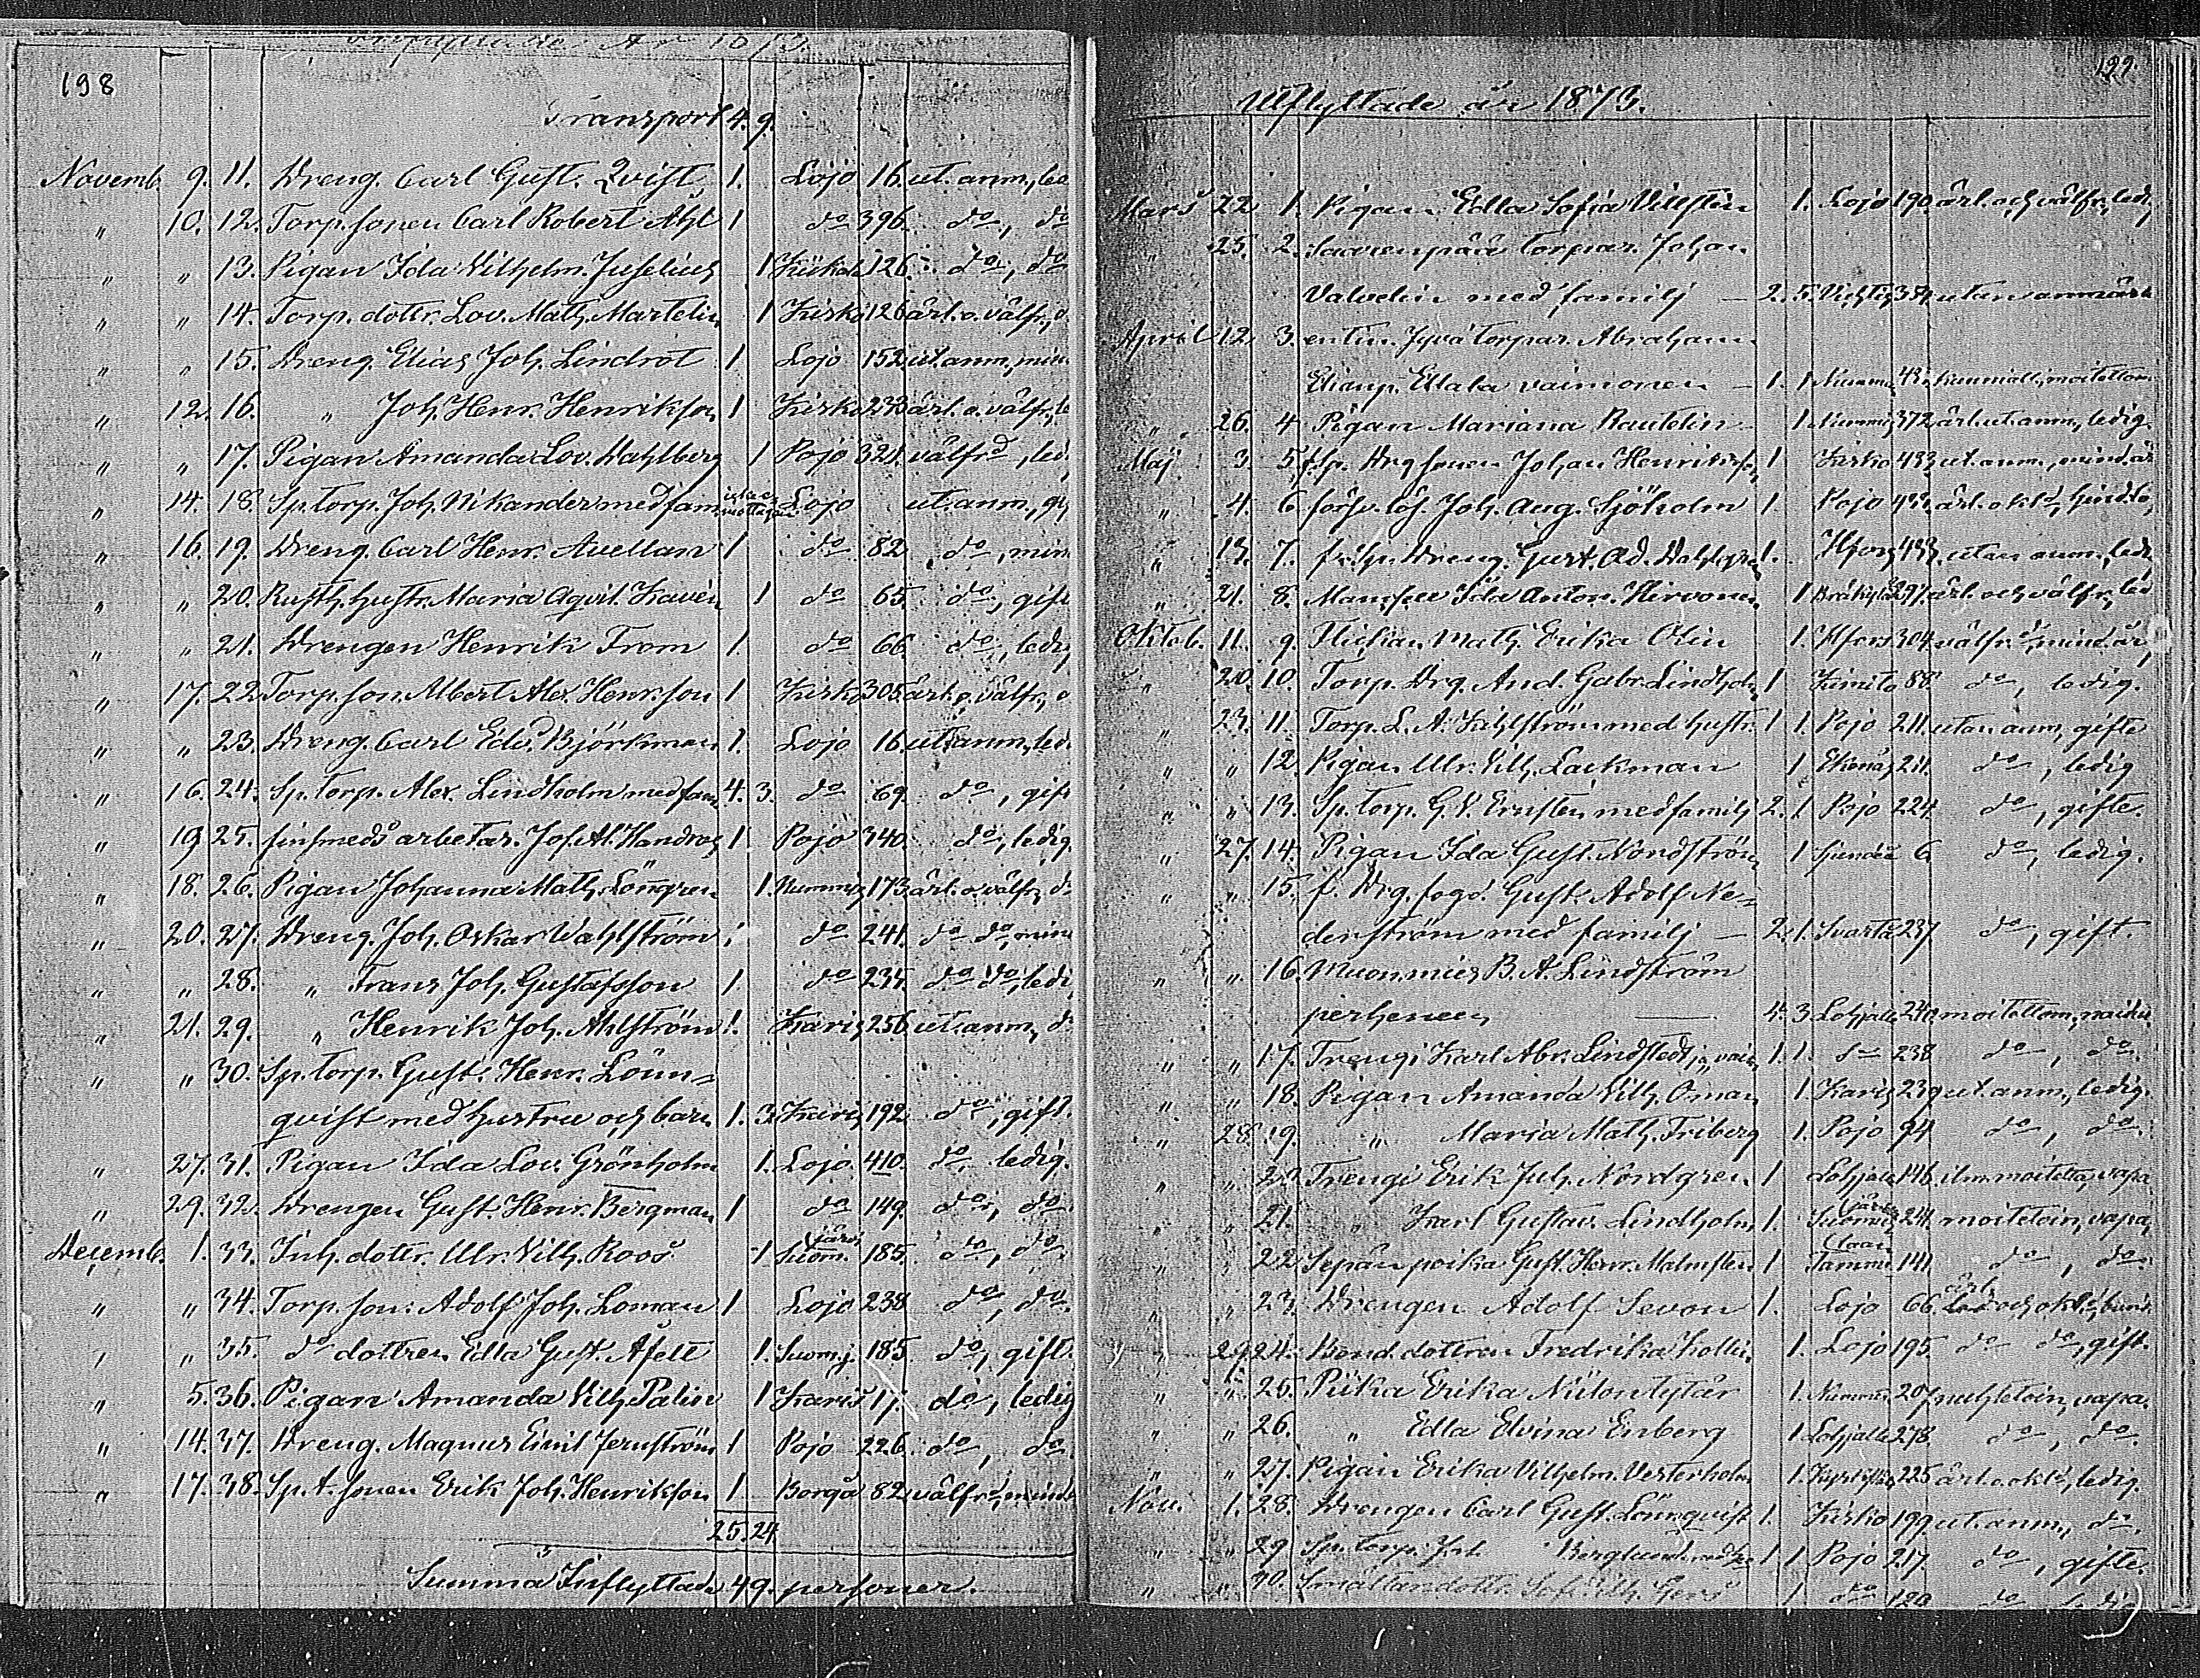 198
Transport 4. 9.
Novemb. 9. 11. Dreng. Carl Gust. Qvist 1. Lojo 16. ut. anm., led
" 10. 12. Torp. sonen Carl Robert Ahl 1 do 396. do, do
" " 13. Pigan Ida Vilhelm. Juselius 1 Kiikala 126. do, do
" " 14. Torp. dottr. Lov. Math. Martelin 1 Kisko 126 ärl. o. välfr.,
" " 15. Dreng. Elias Joh. Lindrot 1 Lojo 152 ut. anm., min
" 12. 16. " Joh. Henr. Henrikson 1 Kisko 233 ärl. o. välfr., l
" " 17. Pigan Amanda Lov. Wahlberg 1 Pojo 321. välfrd, led,
" 14. 18. Sp. torp. Joh. Nikander med fam. icke emottagen Lojo ut. anm., g
" 16. 19. Dreng. Carl Henr. Avellan 1 do 82 do, min
" " 20. Rusth. hustr. Maria Aqvil. Kavén 1 do 65. do, gift
" " 21. Drengen Henrik From 1. do 66. do, ledig
" 17. 22. Torp. son. Albert Alex. Henr. son 1 Kisko 305 ärl. o. välfr.,
" " 23. Dreng. Carl Edv. Björkman 1. Lojo 16. ut anm., led.
" 16. 24. Sp. torp. Alex. Lindholm med fam. 4. 3. do 69. do, gift
" 19 25. finsmeds arbetar. Joh. Al. Handros 1 Pojo 340. do, ledig.
" 18. 26. Pigan Johanna Math. Lönngren 1. Nummis 173 ärl. o. välfr., do
" 20. 27. Dreng. Joh. Oskar Wahlström 1 do 241. do do, min
" " 28. " Frans Joh. Gustafsson 1. do 235. do do, ledi
" 21. 29. " Henrik Joh. Ahlström 1. Karis 256 ut. anm., d
" " 30. Sp. torp. Gust. Henr. Lönn=
qvist med hustru och barn 1. 3. Karis 192 do, gift.
" 27. 31. Pigan Ida Lov. Grönholm 1. Lojo 410. do, ledig.
" 29. 32. Drengen Gust. Henr. Bergman 1 do 149. do, do.
Decemb. 1. 33. Inh. dottr. Ulr. Vilh. Roos 1 Suom. järvi 185. do, do
" " 34. Torp. son. Adolf Joh. Loman 1 Lojo 238 do, do.
" " 35. do dottren Edla Gust. Afelt 1. Suomj. 185. do, gift.
" 5. 36. Pigan Amanda Vilh. Palin 1 Karis 17. do, ledig
" 14. 37. Dreng. Magnus Emil Jernström 1 Pojo 226. do, do
" 17. 38. Sp. t. sonen Erik Joh. Henrikson 1 Borgå 82 välfrd, mind
25. 24
Summa Inflyttade 49. personer.
199.
Utflyttade år 1873.
Mars 22 1. Pigan Edla Sofia Villstén 1. Lojo 190. ärl. och välfr., led,
" 25. 2. Saarenpää torpar. Johan
Valvelin med familj — 2. 5. Vichtis 354 utan anmärk
April 12 3. entin. Jyvä torpar. Abraham
Elianp. Ellala vaimonen — 1. 1 Nummis 431. moitettom
" 26. 4 Pigan Mariana Rautelin 1 Nummis 372 ärl. ut. anm., ledig.
Maj 3. 5 Drg sonen Johan Henriksson 1 Kisko 433 ut. anm., mind. år
" 4. 6 Joh. Aug. Sjöholm 1. Pojo
" 13. 7. f. Sp. Dreng. Gust. Ad. Dahlgren 1. Hfors 433. utan anm., led.
" 21. 8. Mamsell Ida Anton. Hirvonen 1 291. ärl. och välfr., led
Oktob. 11. 9. Math. Erika Olin 1. Hfors 304 välfrd, mind. år,
" 20. 10. Torp. Drg. And. Gabr. Lindholm 1 Kimito 88. do, ledig.
" 23. 11. Torp. L. A. Kihlström med hustr. 1 1. Pojo 211. utan anm., gifte
" " 12. Pigan Ulr. Vilh. Lackman 1 Ekenäs 211. do, ledig
" " 13. Sp. torp. G. V. Ernstén med familj 2. 1. Pojo 224. do, gifte.
" 27. 14. Pigan Ida Gust. Nordström 1 Sjundeå 6. do, ledig.
" " 15. f. Drg. fogd. Gust. Adolf Ne=
derström med familj — 2. 1. Svartå 237 do, gift.
" " 16. Muonmies B. A. Lindström
perheneen — 4. 3. Lohjalle 240 moitettom, naitu.
" " 17. Trengi Karl Abr. Lindstedt ja vaim. 1. 1. do 238 do, do.
" " 18. Pigan Amanda Vilh. Öman 1. Karis 239 ut. anm., ledig.
" 28 19. " Maria Math. Friberg 1. Pojo 94 do, do.
" " 20. Trengi Erik Juh. Nordgren 1 Lohjalle 146. ilm. moitetta, vapa
" " 21. " Karl Gustav Lindholm 1. Suomus järvi 241 moitetoin, vapa,
" " 22 Sepän poika Gust. Henr. Malmsten 1 Tammi 141. do, do
" " 23. Drengen Adolf Sevon 1. Lojo 66. ärl. och okl.
" 29. 24. Bond. dottren Fredrika Kollin 1. Lojo 195. do do, gift.
" " 25. Piika Erika Niilontytär 1. Nummis 207 nuhtetoin, vapa.
" " 26. " Edla Elvina Enberg 1 Lohjalle 278. do, do.
" " 27. Pigan Erika Vilhelm. Vesterholm 1. 225 ärl. o. okl., ledig.
Nov. 1. 28. Drengen Carl Gust. Lönnqvist 1. Kisko 199 ut. anm., do.
" " 29 Sp. torp. Joh. Berglund med 1 1 Pojo 217. do, gifte.
" " 30. 1 do 120. do